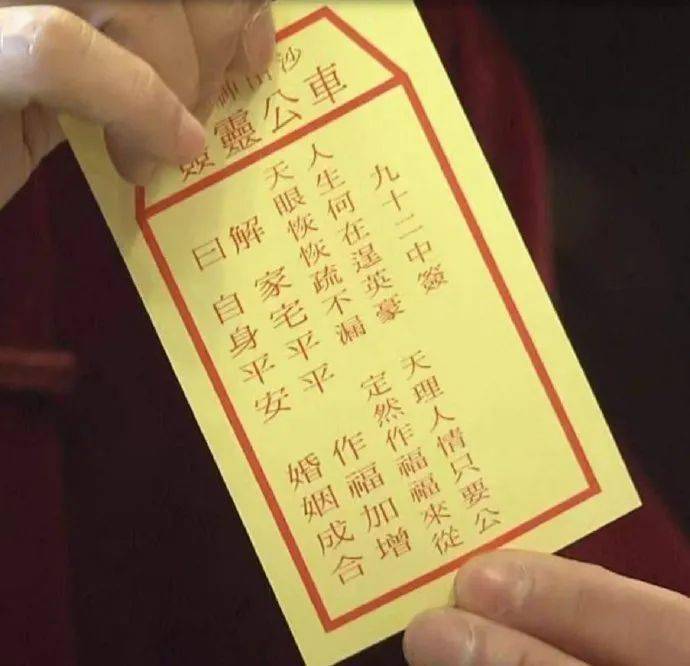 沙田神
車公靈簽
九十二中簽
人生何在逞英豪 天理人情只要公
天眼恢恢疏不漏 定然作福福來從
解 家宅平平 作福加增
曰 自身平安 婚姻成合